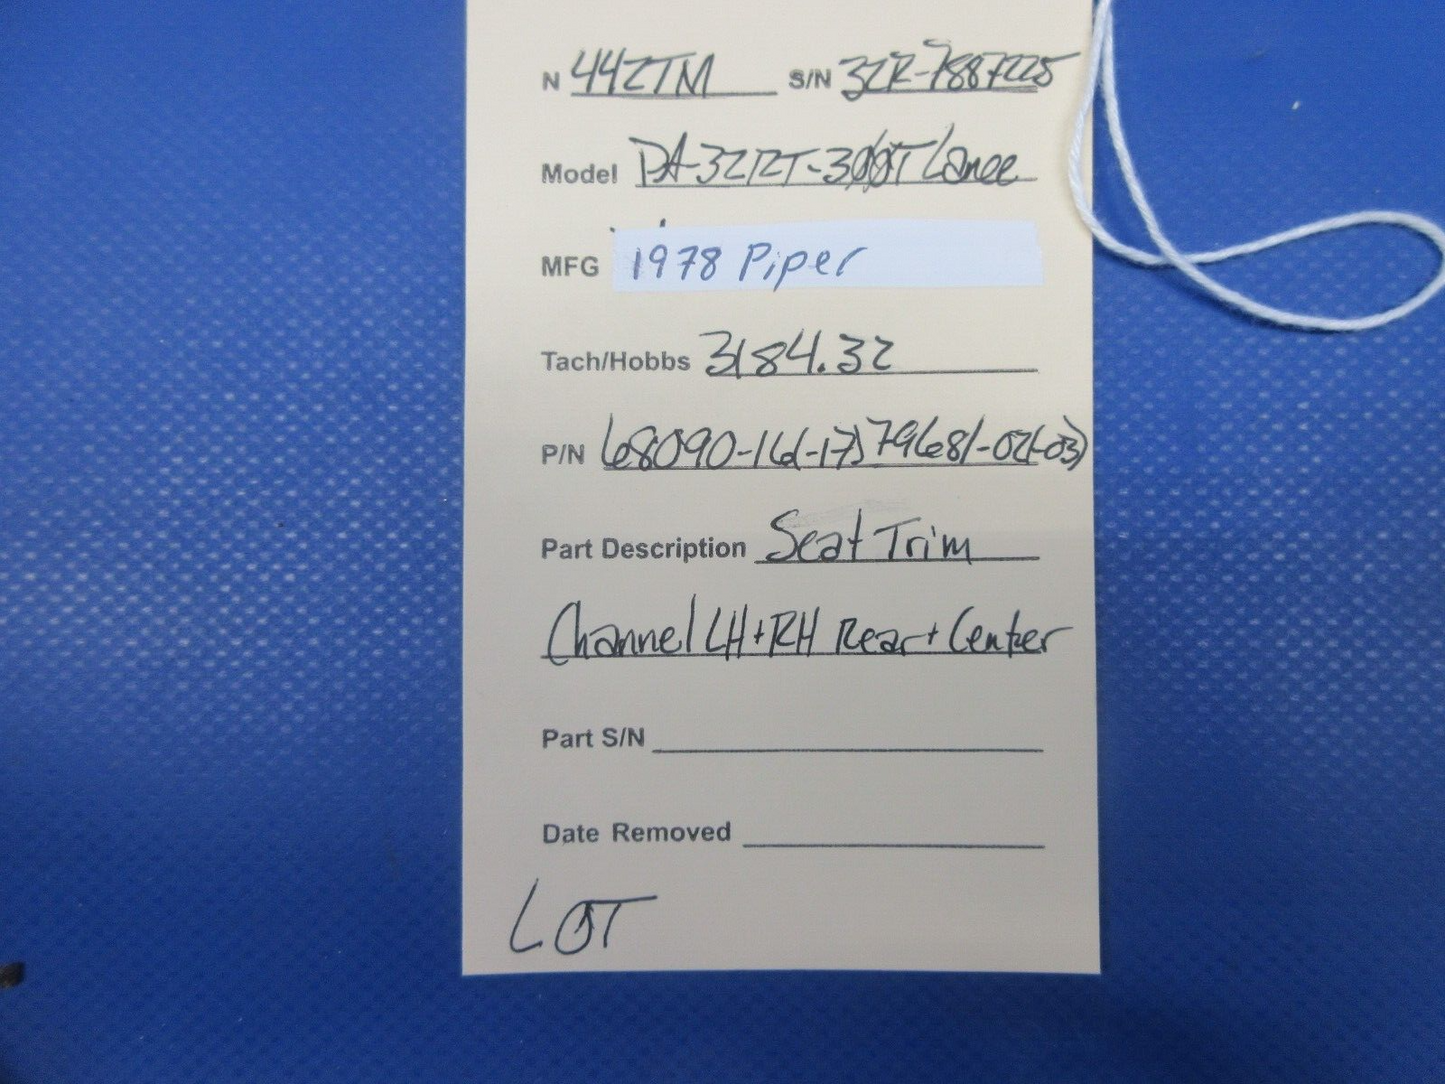 N 442TM S/N 32R-7887225
Model PA-32RT-300T Lance
MFG 1978 Piper
Tach/Hobbs 3184.32
P/N 68090-16(-17) 79681-02(-03)
Part Description Seat Trim
Channel LH + RH Rear + Center
Part S/N
Date Removed
LOT